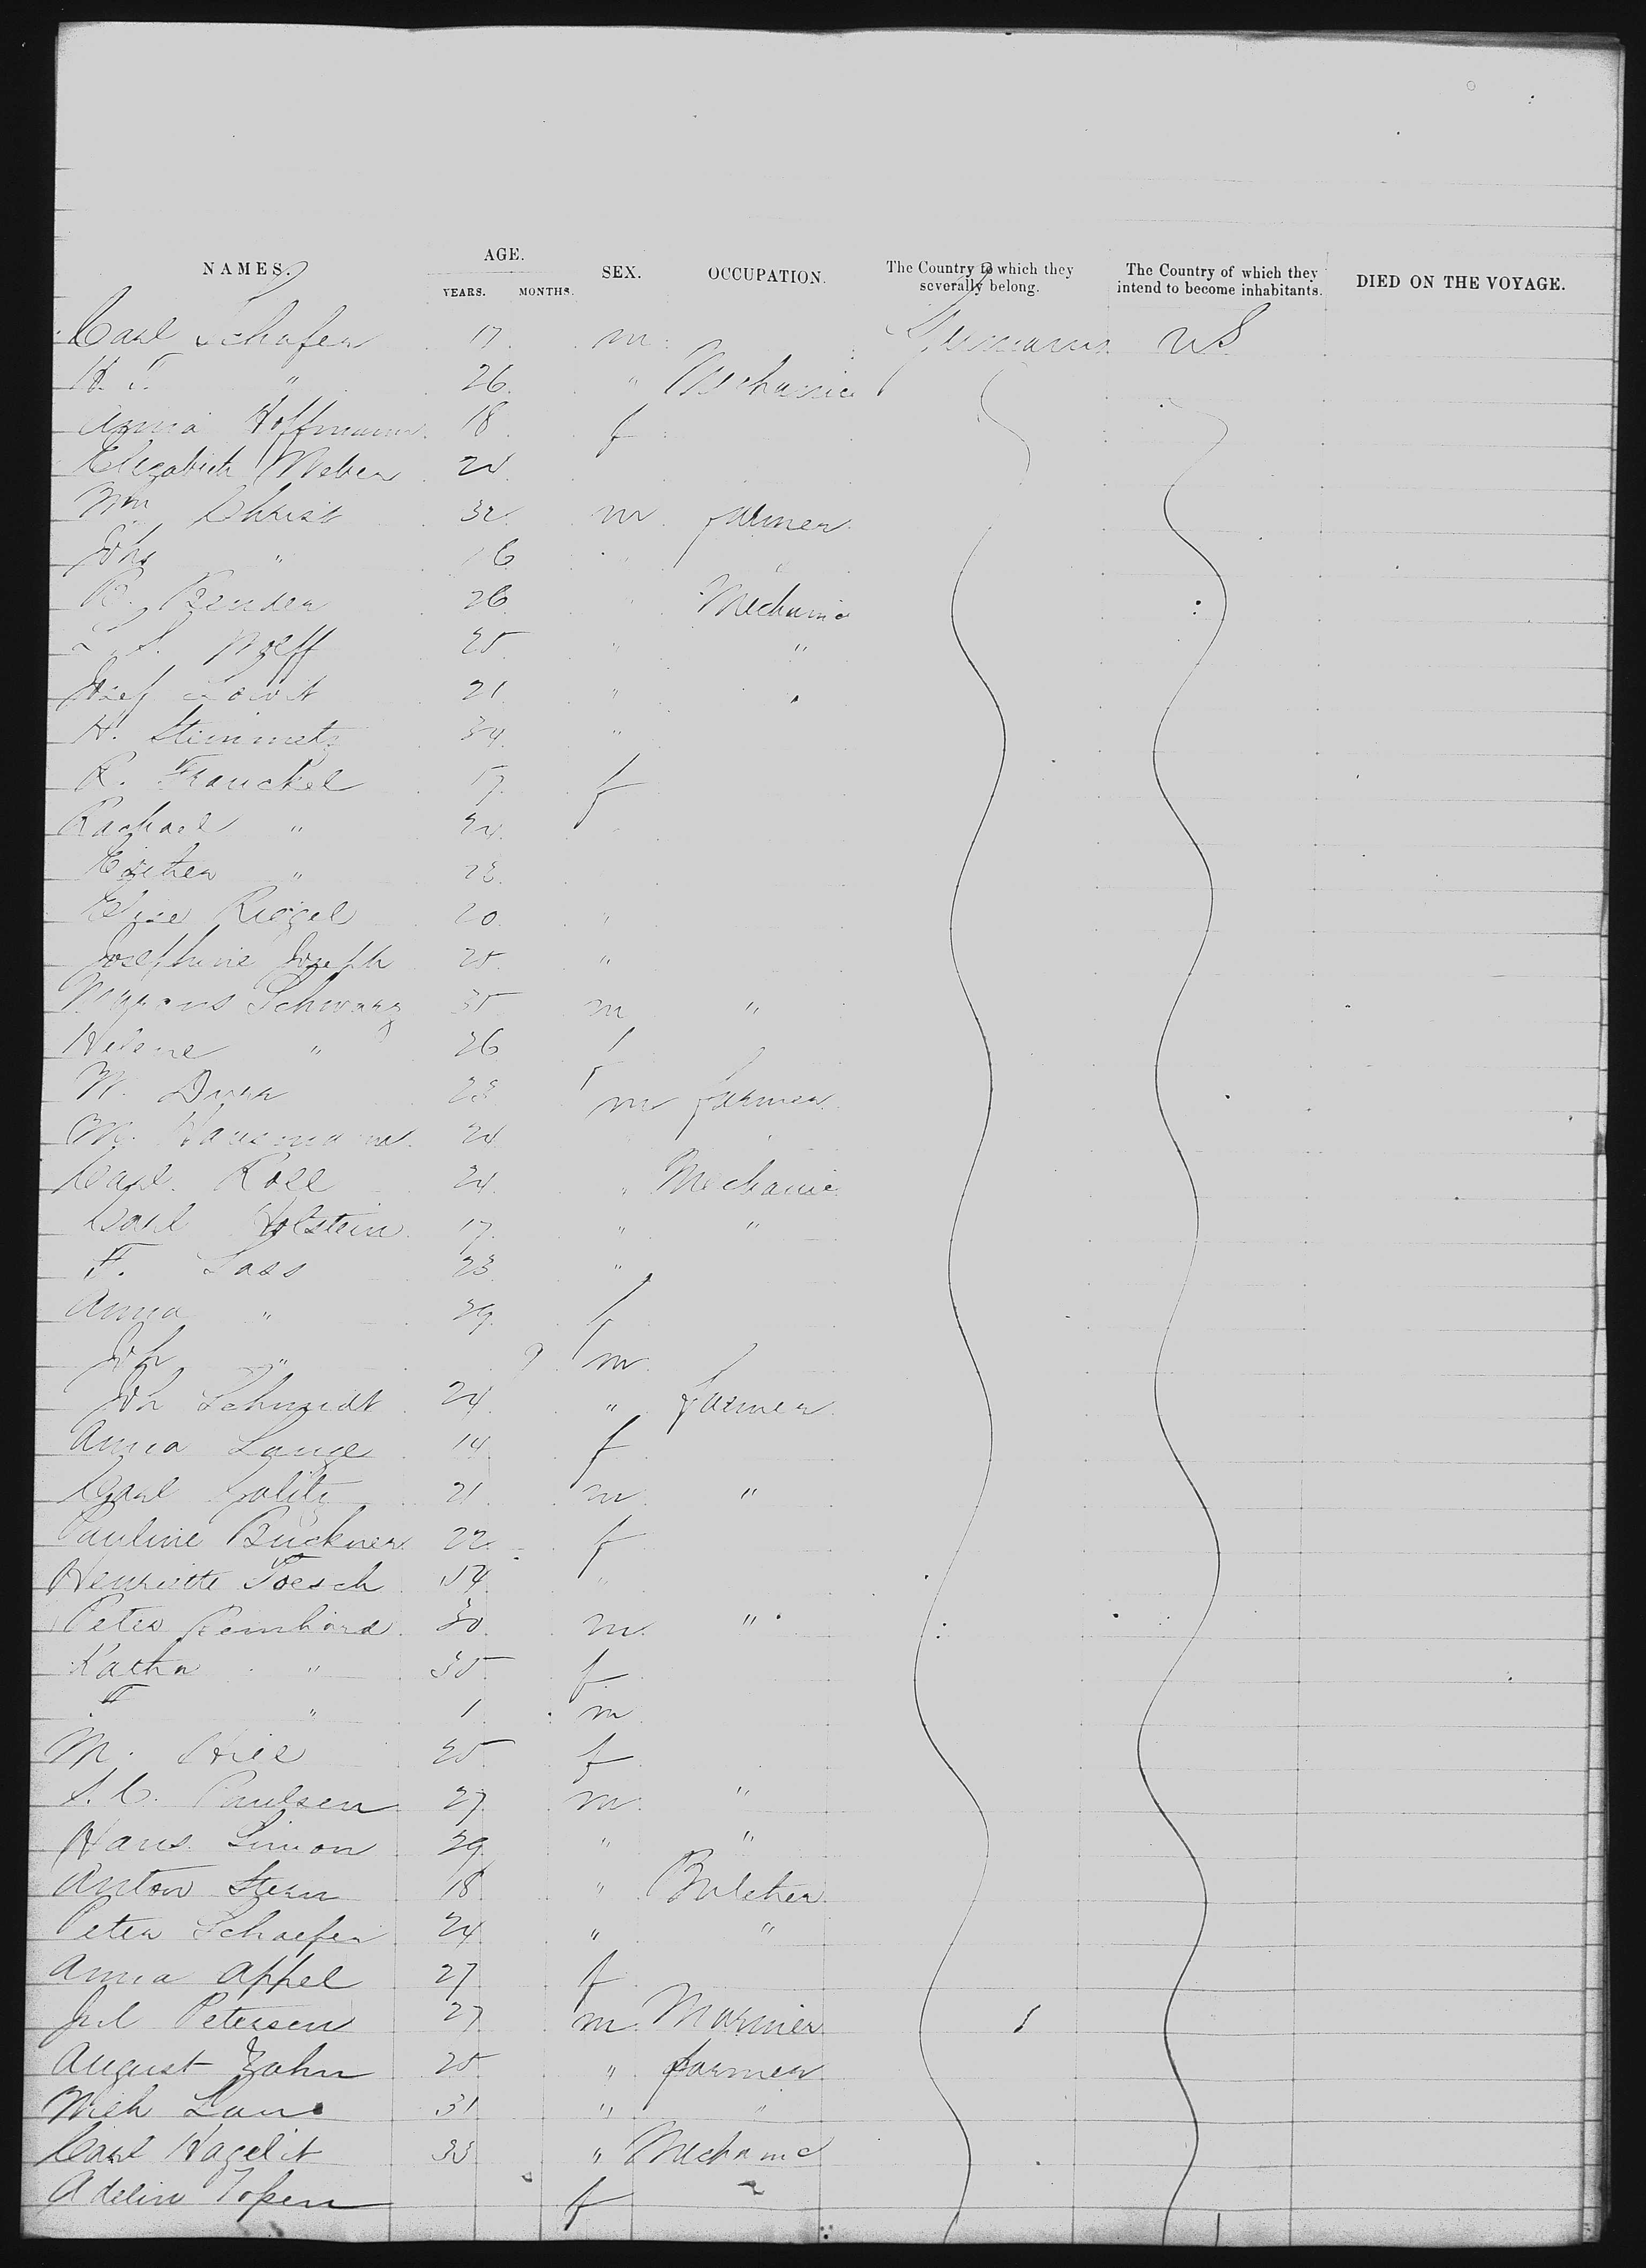 NAMES. AGE. YEARS. MONTHS. SEX. OCCUPATION. The Country to which they severally belong. The Country of which they intend to become inhabitants. DIED ON THE VOYAGE.
Carl Schafer 17 m Germany US
H. F. " 26 " Mechanic
Anna Hoffmann 18 f
Elizabeth Weber 24
Wm Christ 32 m farmer
Joh " 16 "
B. Bender 26 " Mechanic
L. S. Wolff 25 " "
Josef 21 " "
H. Steinmetz 34 "
R. Franckel 17 f
Rachael " 24 "
Esther " 23
Elise Riegel 20 "
Josephine Joseph 25 "
Schwarz 35 m "
Helene " 26 f
W. Durr 23 m farmer
M. Hausmann 24 " "
Carl Rose 24 " Mechanic
Carl Holstein 17 " "
F. Lass 23 "
Anna " 29 f
Joh " 9 m
Joh Schmidt 24 " farmer
Anna Lange 14 f
Carl 21 m "
Pauline Buckner 22 f
Henriette Poesch 54 "
Peter Reinhard 30 m "
Katha " 35 f
F " 1 m
M. Hies 25 f
S. C. Paulsen 27 m "
Hans Simon 29 " "
Anton Stern 18 " Butcher
Peter Schaefer 24 " "
Anna Appel 27 f
Jul Petersen 27 m Mariner
August Zahn 25 " farmer
Mich 31 " "
Carl 33 " Mechanic
Adelin f